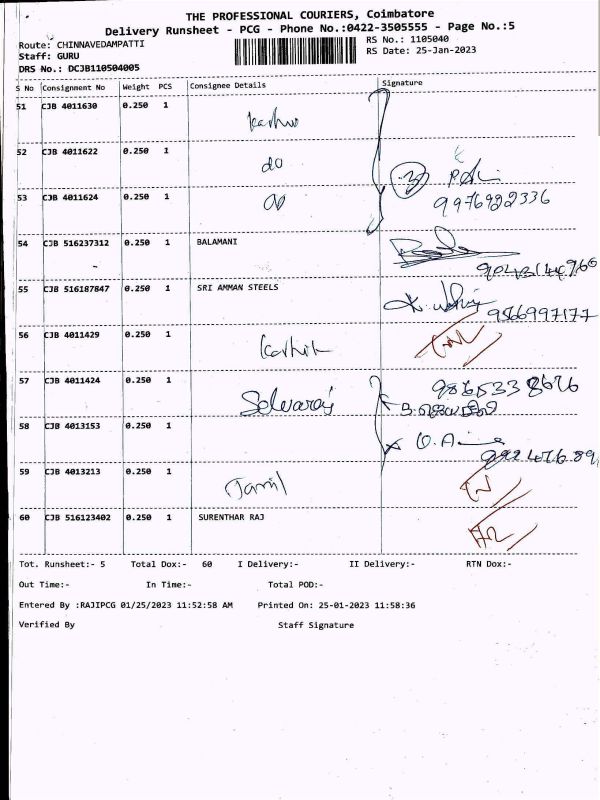 THE PROFESSIONAL COURIERS, Coimbatore
Delivery Runsheet - PCG - Phone No.:0422-3505555 - Page No.:5
Route: CHINNAVEDAMPATTI RS No.: 1105040
Staff: GURU RS Date: 25-Jan-2023
DRS No.: DCJB110504005
S No Consignment No Weight PCS Consignee Details Signature
51 CJB 4011630 0.250 1
52 CJB 4011622 0.250 1 do
53 CJB 4011624 0.250 1 do
9976922336
54 CJB 516237312 0.250 1 BALAMANI
55 CJB 516187847 0.250 1 SRI AMMAN STEELS
9566997177
56 CJB 4011429 0.250 1 Karthik
57 CJB 4011424 0.250 1 Selvaraj
58 CJB 4013153 0.250 1
59 CJB 4013213 0.250 1 Tamil
60 CJB 516123402 0.250 1 SURENTHAR RAJ
Tot. Runsheet:- 5 Total Dox:- 60 I Delivery:- II Delivery:- RTN Dox:-
Out Time:- In Time:- Total POD:-
Entered By :RAJIPCG 01/25/2023 11:52:58 AM Printed On: 25-01-2023 11:58:36
Verified By Staff Signature